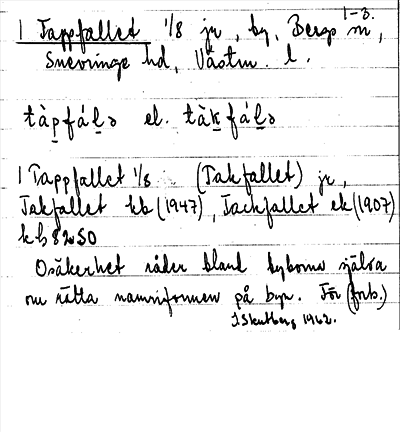 1-3.
1 Tappfallet 1/8 jr, by, Bergs sn,
Snevringe hd, Västm. l.
tàpfál̠ə el. tàk̠fál̠ə
1 Tappfallet 1/8 (Takfallet) jr,
Takfallet kb (1947), Tackfallet ek (1907)
kb 82 SO
Osäkerhet råder bland byborna själva
om rätta namnformen på byn. För (forts.)
1962.